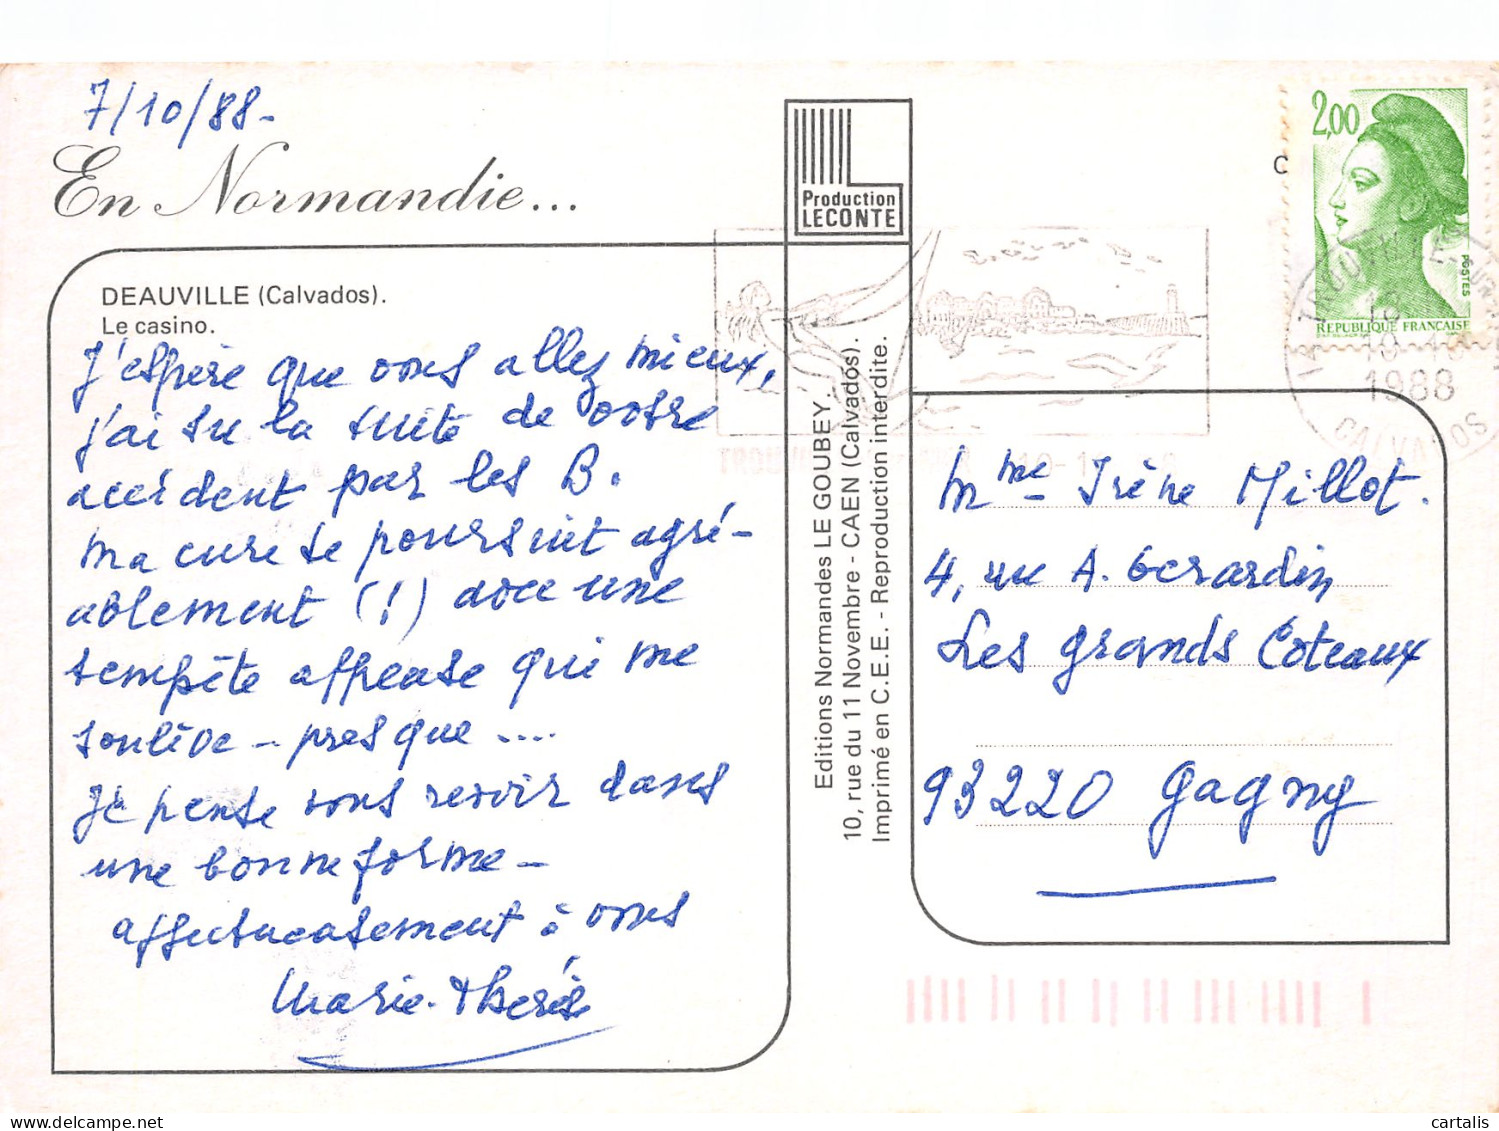 7/10/88-
En Normandie...
DEAUVILLE (Calvados).
Le casino.
J'espère que vous allez mieux,
j'ai su la suite de votre
accident par les B.
Ma cure se poursuit agré-
ablement (!) avec une
tempête affreuse qui me
soulève - presque ....
Je pense vous revoir dans
une bonne forme -
affectueusement à vous
Marie-Thérèse
Production
LECONTE
Editions Normandes LE GOUBEY
10, rue du 11 Novembre - CAEN (Calvados).
Imprimé en C.E.E. - Reproduction interdite.
C
2,00
POSTES
REPUBLIQUE FRANCAISE
TROUVILLE SUR
1988
CALVADOS
Mme Irène Millot.
4, rue A. Gérardin
Les Grands Coteaux
93220 Gagny
cartalis